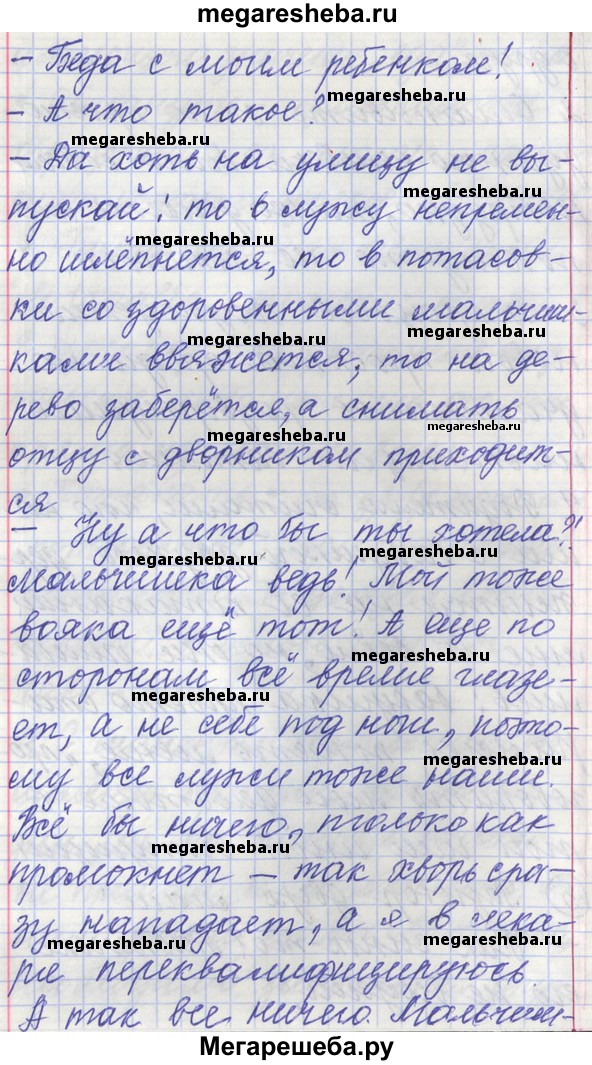 megaresheba.ru
– Беда с моим ребенком!
– А что такое?
megaresheba.ru
megaresheba.ru
– Да хоть на улицу не вы-
megaresheba.ru
пускай! то в лужу непремен-
megaresheba.ru
но шлёпнется, то в потасов-
ки со здоровенными мальчиш-
megaresheba.ru
megaresheba.ru
ками ввяжется, то на де-
рево заберётся, а снимать
megaresheba.ru
megaresheba.ru
отцу с дворником приходит-
ся
– Ну а что бы ты хотела?!
megaresheba.ru
megaresheba.ru
мальчишка ведь! Мой тоже
вояка ещё тот! А еще по
megaresheba.ru
сторонам всё время глазе-
megaresheba.ru
ет, а не себе под ноги, поэто-
megaresheba.ru
му все лужи тоже наши.
Всё бы ничего, только как
megaresheba.ru
промокнет – так хворь сра-
зу нападает, а я в лека-
megaresheba.ru
megaresheba.ru
ри переквалифицируюсь.
А так все ничего. Мальчиш-
Мегарешеба.ру